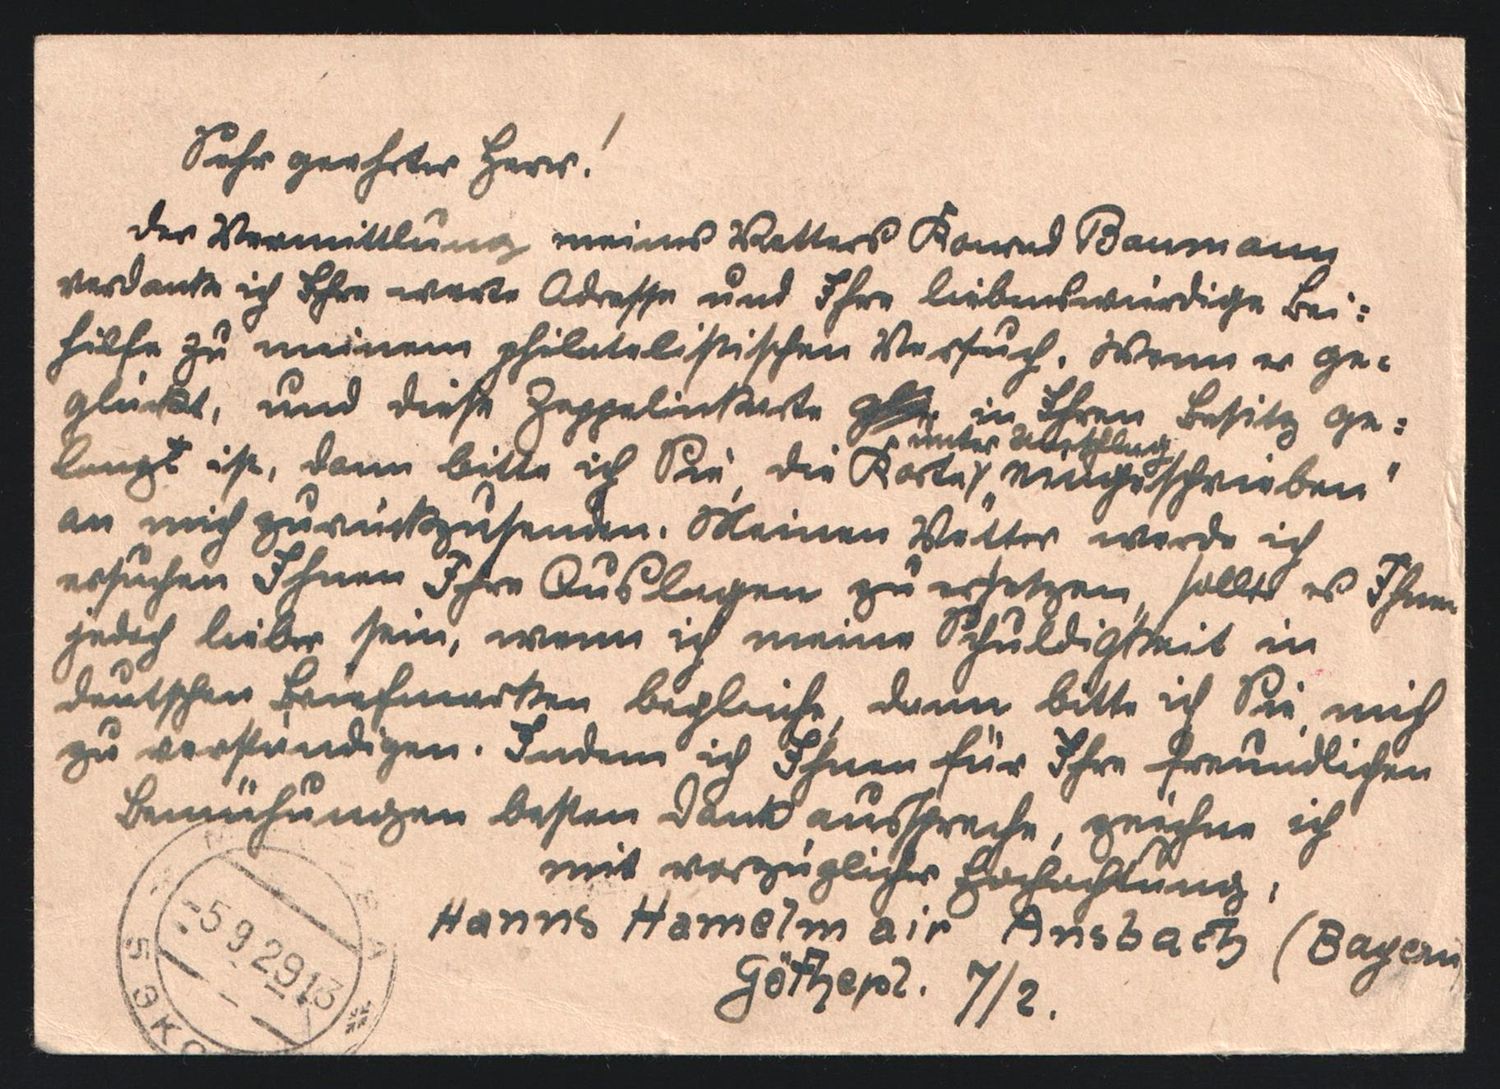 Sehr geehrter Herr!
Der Vermittlung meines Vetters Konrad Baumann
verdanke ich Ihre werte Adresse und Ihre liebenswürdige Bei:
hilfe zu meinem philatelistischen Versuch. Wenn er ge-
glückt, und diese Zeppelinkarte in Ihren Besitz ge:
unter Umschlag
langt ist, dann bitte ich Sie, die Karte „eingeschrieben"
an mich zurückzusenden. Meinen Vetter werde ich
ersuchen Ihnen Ihre Auslagen zu ersetzen, sollte es Ihnen
jedoch lieber sein, wenn ich meine Schuldigkeit in
deutschen Briefmarken begleiche, dann bitte ich Sie, mich
zu verständigen. Indem ich Ihnen für Ihre freundlichen
Bemühungen besten Dank ausspreche, zeichne ich
mit vorzüglicher Hochachtung,
Hanns Hamelmair Ansbach (Bayern
Göthepl. 7/2.
-5.9.29.13